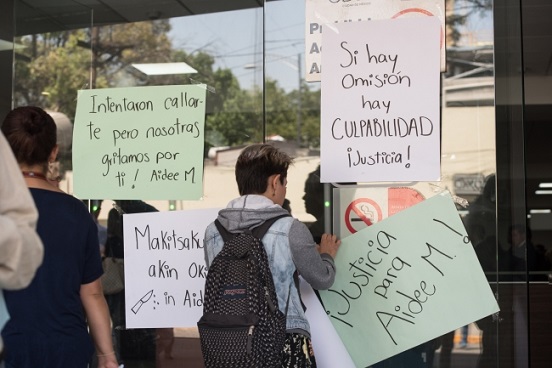 Intentaron callar-
te pero nosotras
gritamos por
ti! Aidee M.
Si hay
omisión
hay
CULPABILIDAD
¡Justicia!
Makitsaku
akin Oki
in Aid
¡Justicia
para
Aidee M.!